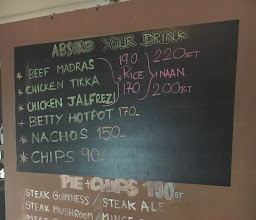 ABSORB YOUR DRINK
* BEEF MADRAS 190 220BT
* CHICKEN TIKKA + RICE + NAAN
* CHICKEN JALFREZI 170 200BT
+ BETTY HOTPOT 170
* NACHOS 150
* CHIPS 90
PIE + CHIPS 190BT
STEAK GUINNESS / STEAK ALE
STEAK MUSHROOM / MINCE